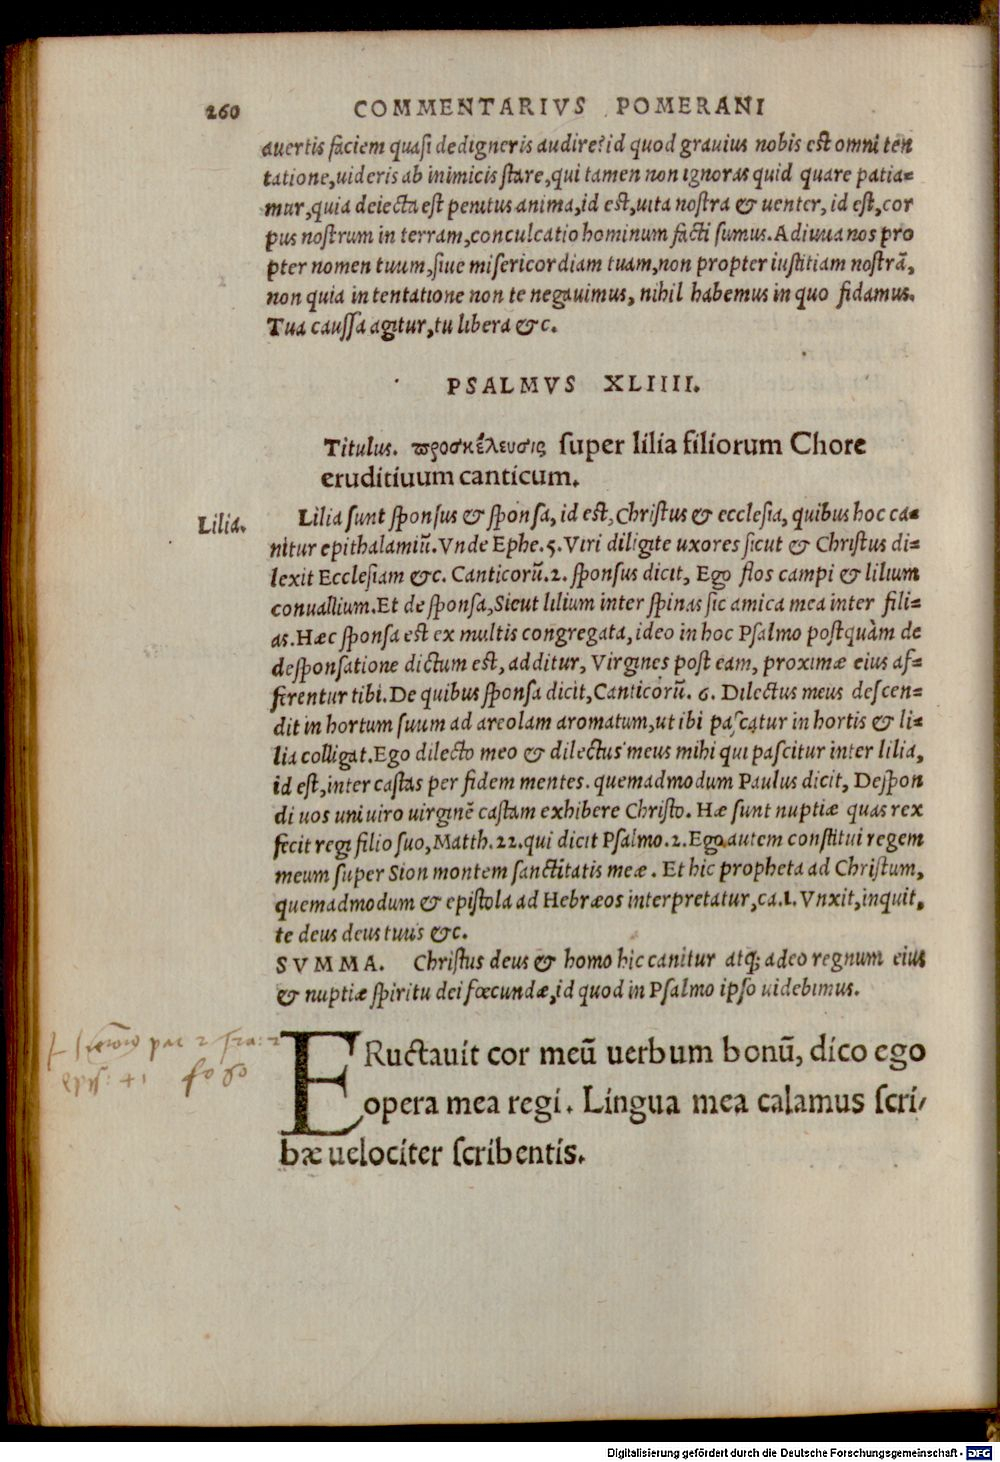 260 COMMENTARIVS POMERANI
auertis faciem quasi dedigneris audire? id quod grauius nobis est omni ten
tatione, uideris ab inimicis stare, qui tamen non ignoras quid quare patia=
mur, quia deiecta est penitus anima, id est, uita nostra & uenter, id est, cor
pus nostrum in terram, conculcatio hominum facti sumus. Adiuua nos pro
pter nomen tuum, siue misericordiam tuam, non propter iustitiam nostrã,
non quia in tentatione non te negauimus, nihil habemus in quo fidamus.
Tua caussa agitur, tu libera &c.
PSALMVS XLIIII.
Titulus. προσκέλευσις super lilia filiorum Chore
eruditiuum canticum.
Lilia.
Lilia sunt sponsus & sponsa, id est, Christus & ecclesia, quibus hoc ca=
nitur epithalamiũ. Vnde Ephe. 5. Viri diligite uxores sicut & Christus di=
lexit Ecclesiam &c. Canticorũ. 2. sponsus dicit, Ego flos campi & lilium
conuallium. Et de sponsa, Sicut lilium inter spinas sic amica mea inter fili=
as. Hæc sponsa est ex multis congregata, ideo in hoc Psalmo postquàm de
desponsatione dictum est, additur, Virgines post eam, proximæ eius af=
ferentur tibi. De quibus sponsa dicit, Canticorũ. 6. Dilectus meus descen=
dit in hortum suum ad areolam aromatum, ut ibi pascatur in hortis & li=
lia colligat. Ego dilecto meo & dilectus meus mihi qui pascitur inter lilia,
id est, inter castas per fidem mentes. quemadmodum Paulus dicit, Despon
di uos uni uiro uirginẽ castam exhibere Christo. Hæ sunt nuptiæ quas rex
fecit regi filio suo, Matth. 22. qui dicit Psalmo. 2. Ego autem constitui regem
meum super Sion montem sanctitatis meæ. Et hic propheta ad Christum,
quemadmodum & epistola ad Hebræos interpretatur, ca. 1. Vnxit, inquit,
te deus deus tuus &c.
SVMMA. Christus deus & homo hic canitur atq; adeo regnum eius
& nuptiæ spiritu dei fœcundæ, id quod in Psalmo ipso uidebimus.
ERuctauit cor meũ uerbum bonũ, dico ego
opera mea regi. Lingua mea calamus scri/
bæ uelociter scribentis.
Digitalisierung gefördert durch die Deutsche Forschungsgemeinschaft - DFG